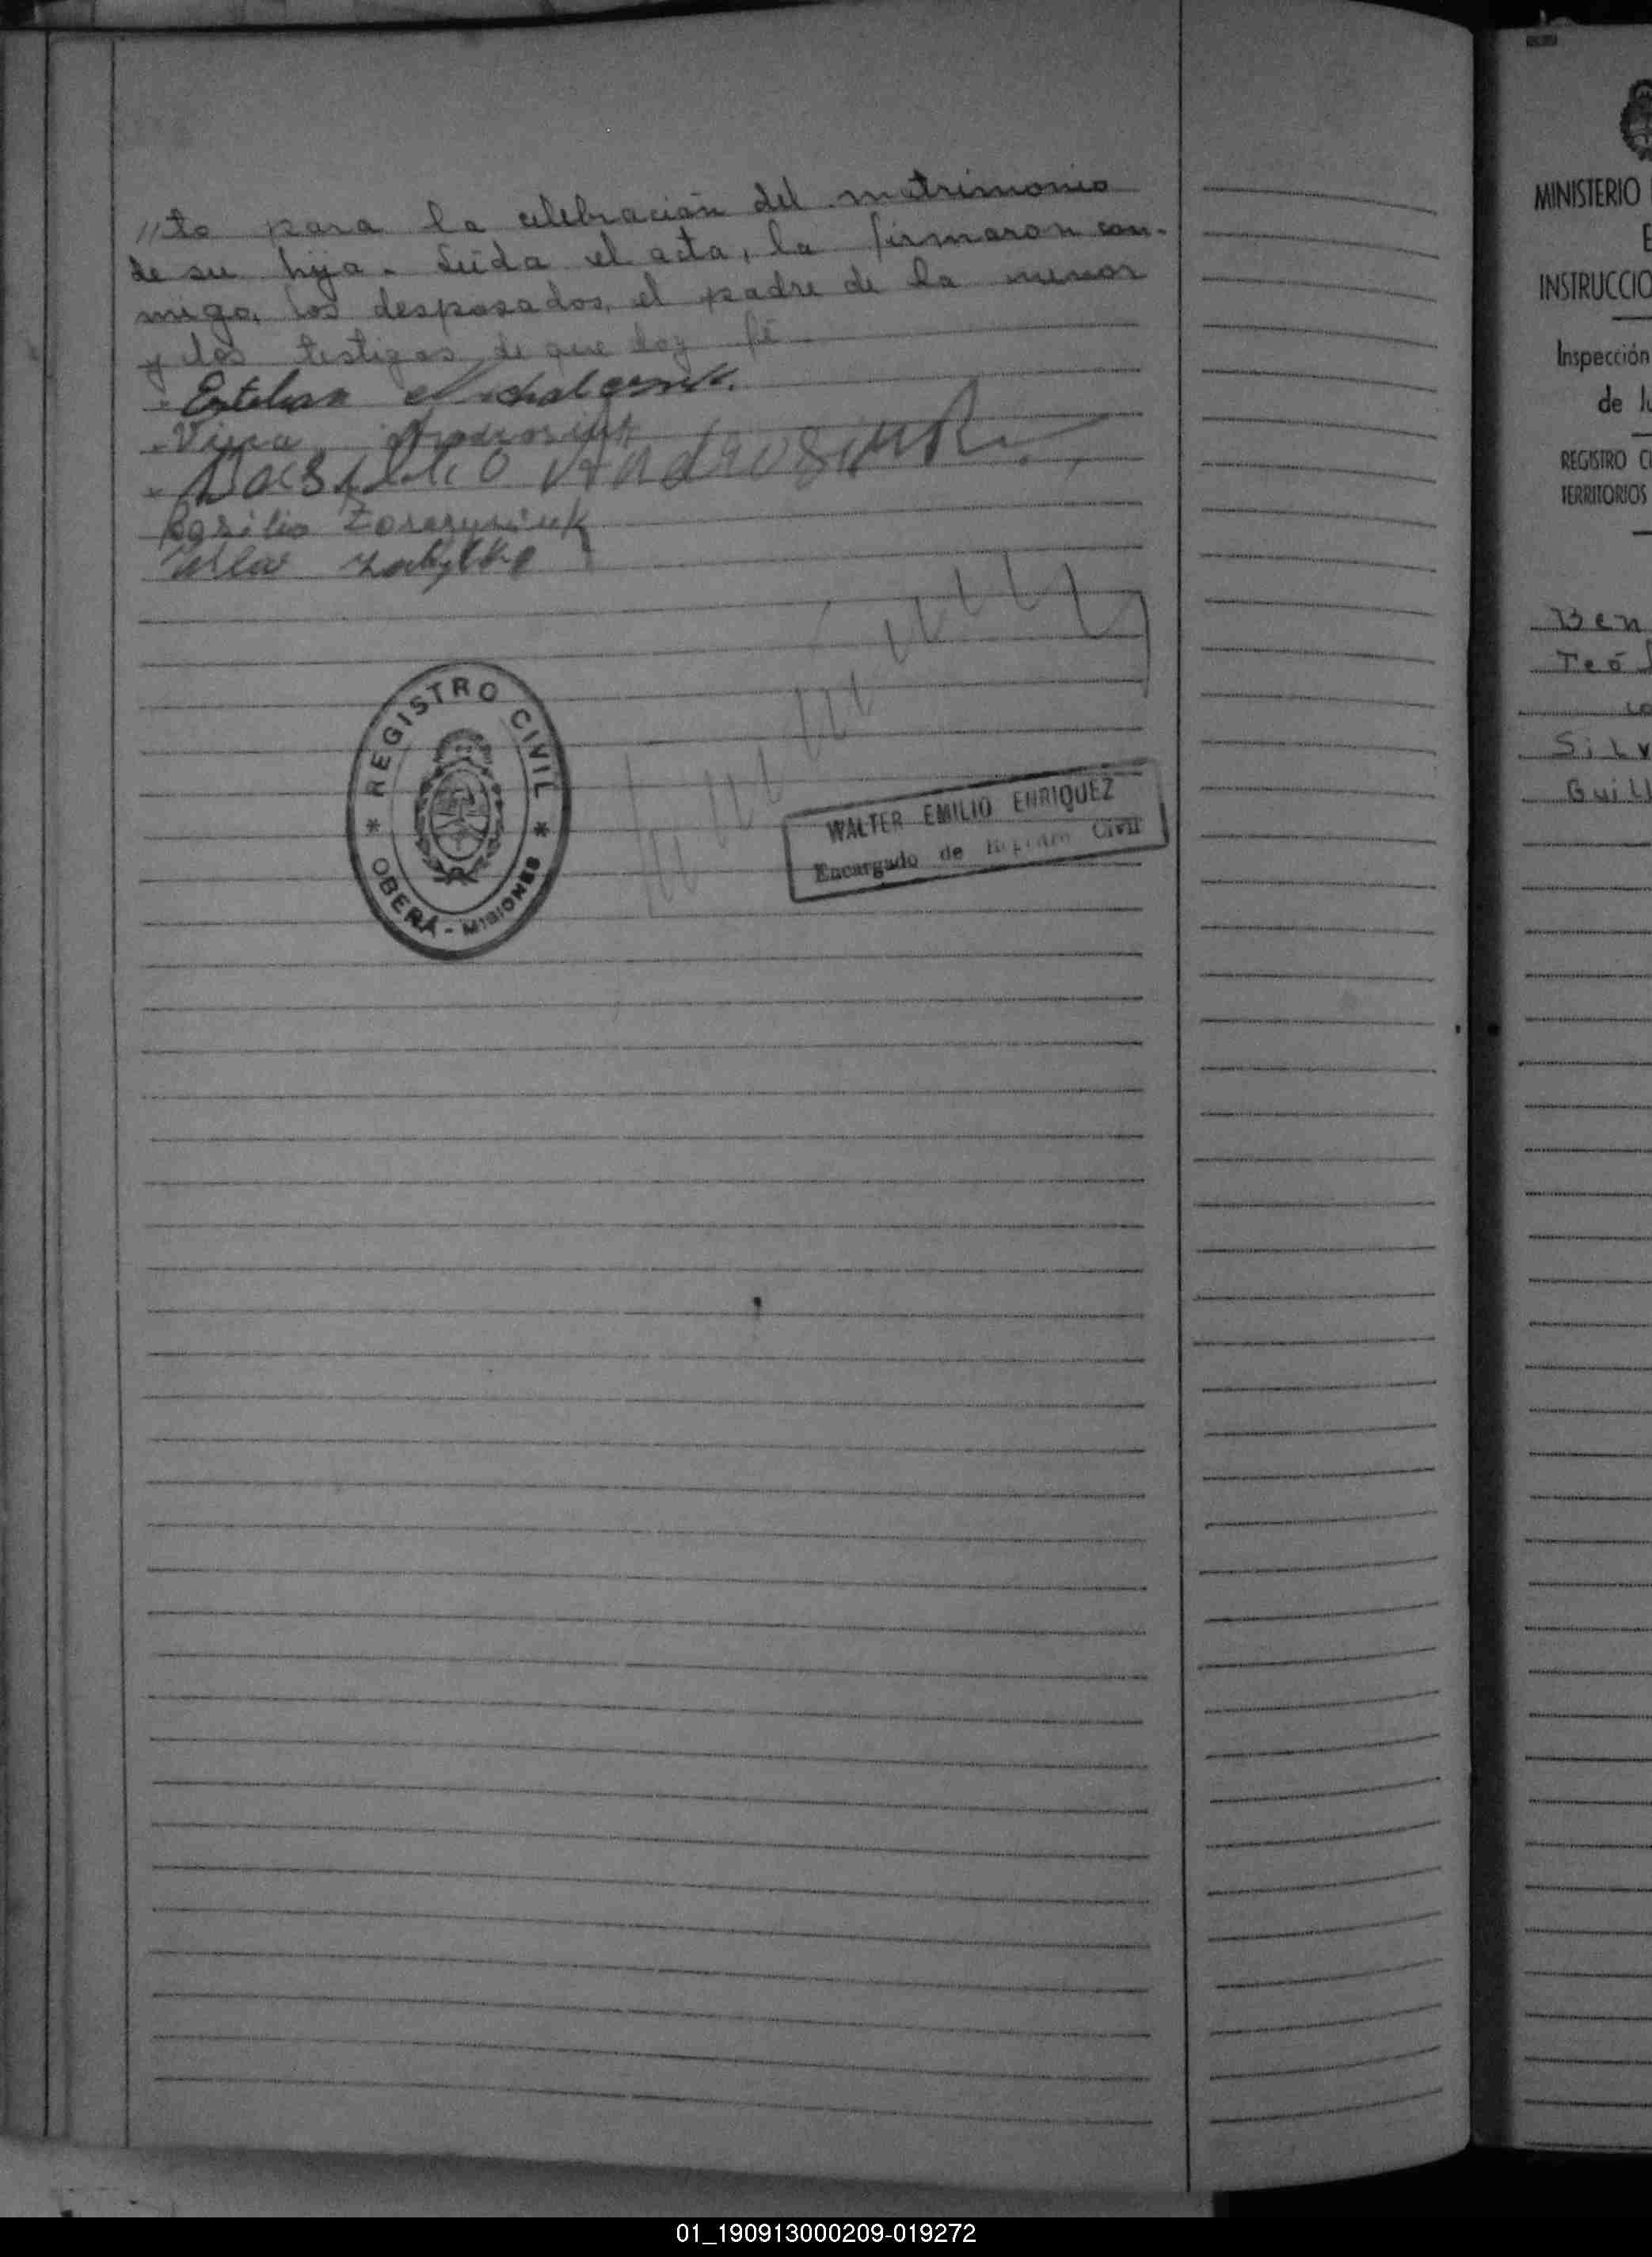 //to para la celebración del matrimonio
de su hija. Leída el acta, la firmaron con-
migo, los desposados, el padre de la menor
y los testigos de que doy fé
Esteban
Androsiuk
Basilio Androsiuk
Basilio
REGISTRO CIVIL
* *
OBERÁ - MISIONES
WALTER EMILIO ENRIQUEZ
Encargado de Registro Civil
MINISTERIO
E
INSTRUCCIO
Inspección
de Ju
REGISTRO C
TERRITORIOS
Ben
Teó
co
Silv
Guill
01_190913000209-019272